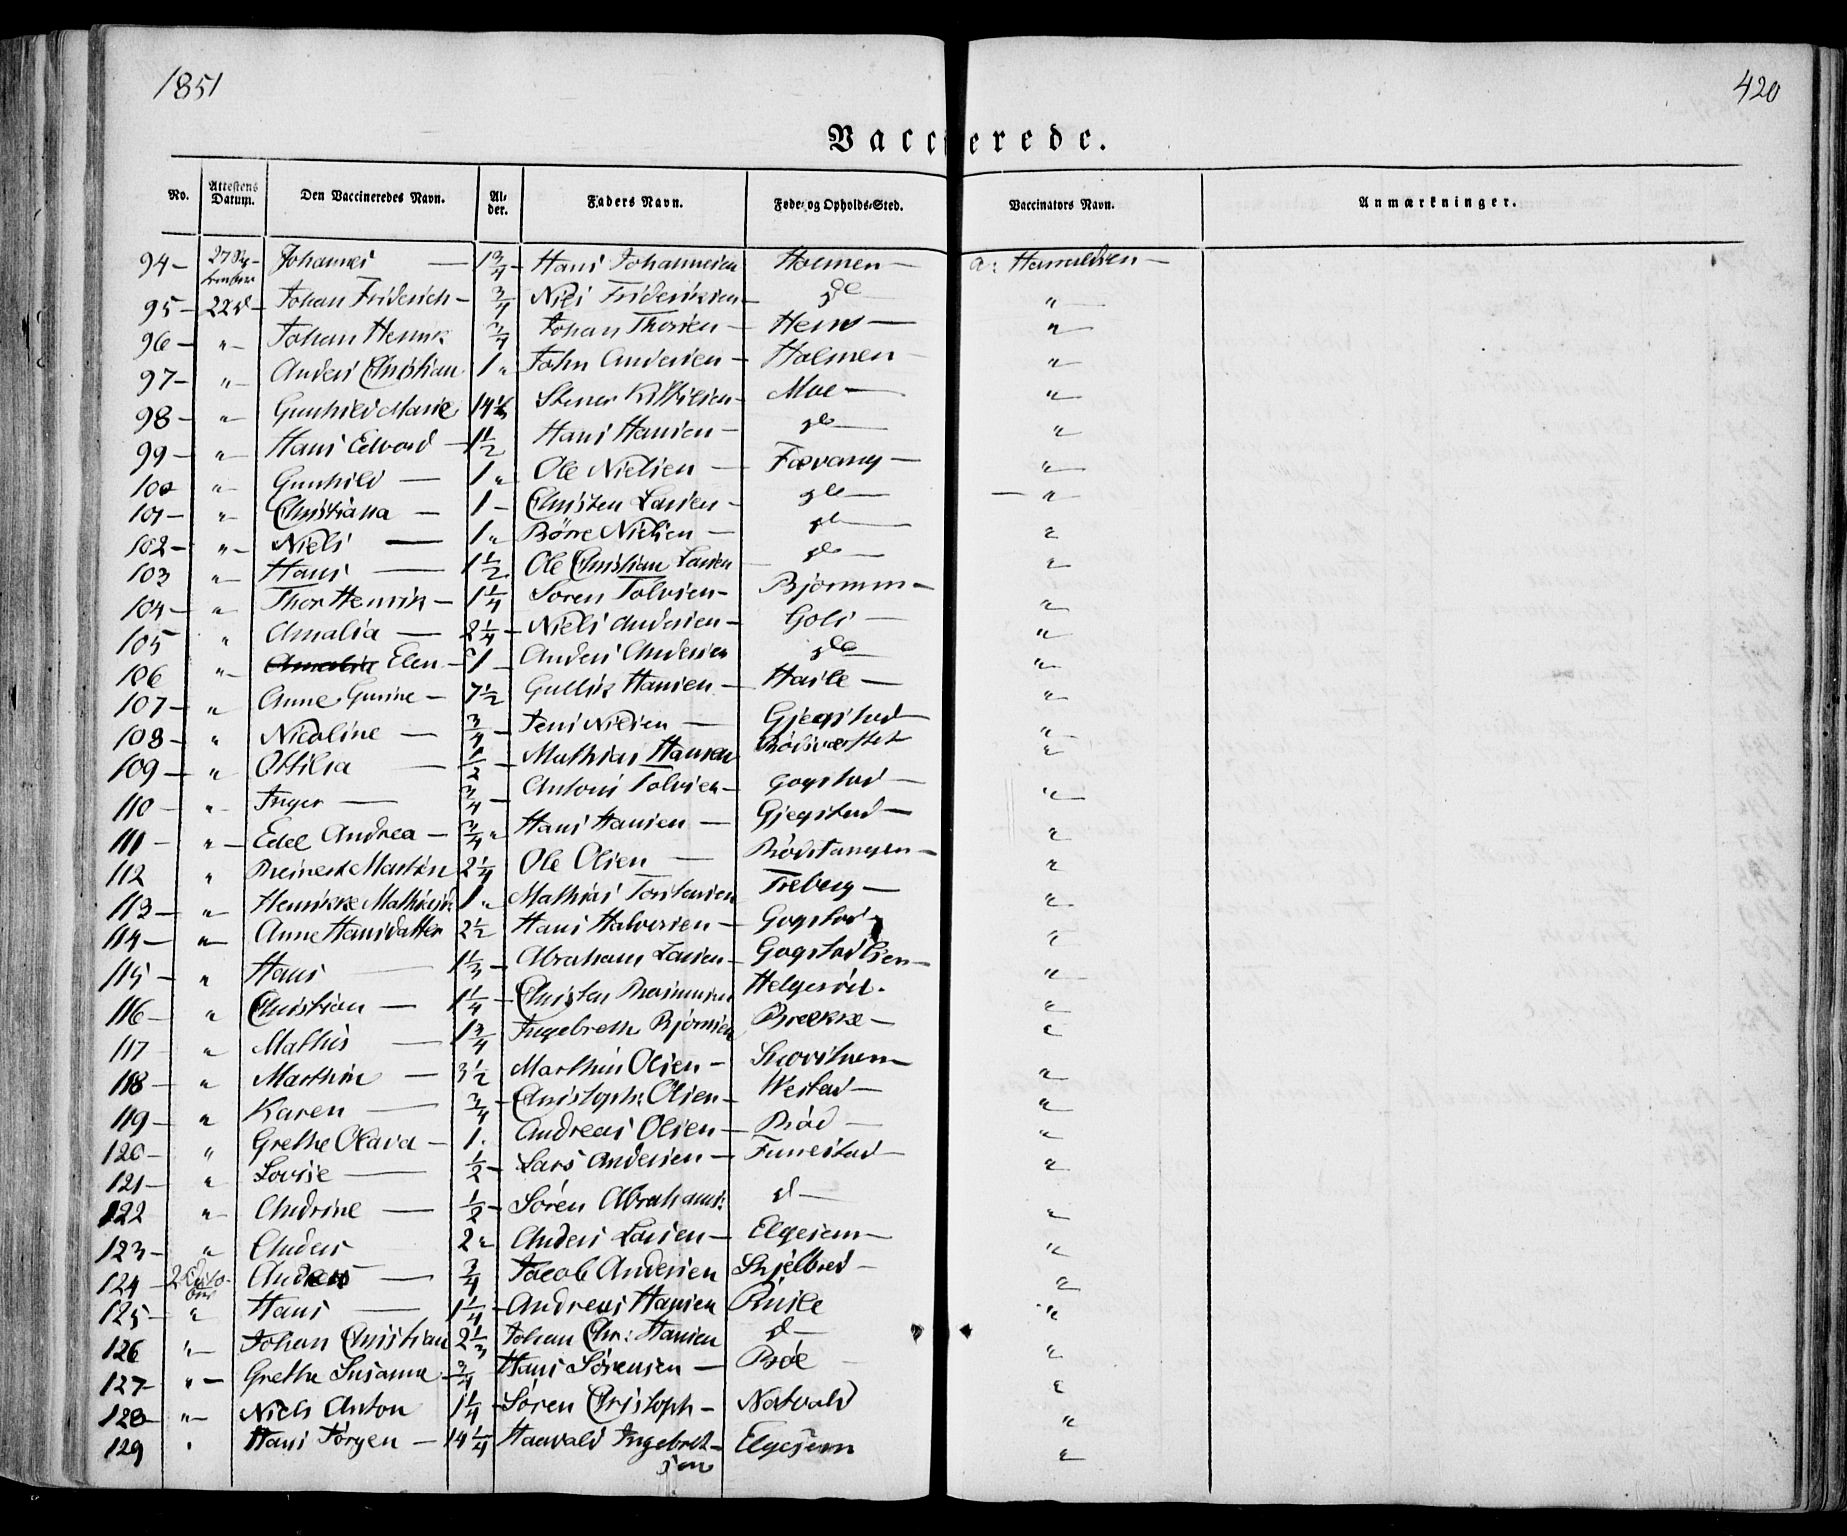 1851
420
Vaccinerede.
No. Attestens Datum. Den Vaccineredes Navn. Al- der. Faders Navn. Føde- og Opholds-Sted. Vaccinators Navn. Anmærkninger.
94 – Johannes — 1 3/4 – Hans Johannesen Holmen –
95 – 22d – Johan Friderich – 3/4 Niels Frideriksen – do — "
96 – " – Johan Henrik 3/4 Johan Thorsen – "
97 – " – Anders Christian 1 " John Andersen – Holmen – "
98 – " – Gunhild Marie Moe – "
99 – " – Hans Edvard – 1 1/2 Hans Hansen – do — "
100 " – Gunhild — 1 " Ole Nielsen – Fævang – "
101 – " – Christiana – 1 – Christen Larsen – do — – "
102 – " – Niels — 1 " Börre Nielsen – do — "
103 " – Hans — 1 1/2 Ole Christian Larsen do — "
104 – " – Thor Henrik – 1 1/4 Soren Tolvsen – "
105 " Amalia — 2 1/4 – Niels Andersen – Goli – "
106 " – Elen – 1 – Anders Andersen do — "
107 – " Anne Gurine – 7 1/2 Gullik Hansen – Hasle – "
108 – " Nicoline – 3/4 – Jens Nielsen — Gjegstad – "
109 – " Ottilia — 1/2 – Mathias Hansen "
110 – " – Inger — 3/4 – Antoni Tolvsen – Gogstad – "
111 – " – Edel Andrea – 3/4 " Hans Hansen – Gjegstad – "
112 " Reinert Martin 2 1/4 Ole Olsen — Rödstangen – "
113 – " – Henrikke 1 " Mathias Torstensen Treberg – "
114 – " – Anne Hansdatter 2 1/2 Hans Halvorsen – Gogstad "
115 – " Hans — 1 1/3 – Abraham Larsen – "
116 – " Christian — 1 1/4 – Christen Helgeröd. "
117 – " Mathis — 1 3/4 Ingebreth Björnsen Brekke – "
118 – " Marthin — 3 1/2 Marthin Olsen – "
119 – " Karen — 3/4 – Christoph: Olsen – Westad – "
120 – " Grethe Olava – 1 . Andreas Olsen – Röd – "
121 – " Lovise — 1/2 – Lars Andersen – Furestad – "
122 " – Andrine — 1/2 – Sören Abrahams: d – "
123 – " Anders 2 " Anders Larsen – Elgesem – "
124 – — 3/4 Jacob Andersen Skjelbred – "
125 – " Hans — 1 1/4 – Andreas Hansen "
126 " – Johan Christian 2 1/3 Johan Chr: Hansen d – "
127 – " – Grethe Susanna – 3/4 Hans Sörensen – Röe – "
128 – " – Niels Anton 1 1/4 – Sören Christoph – "
129 " Hans Jörgen – 14 1/4 Haavald Ingebret- Elgesem "
sen